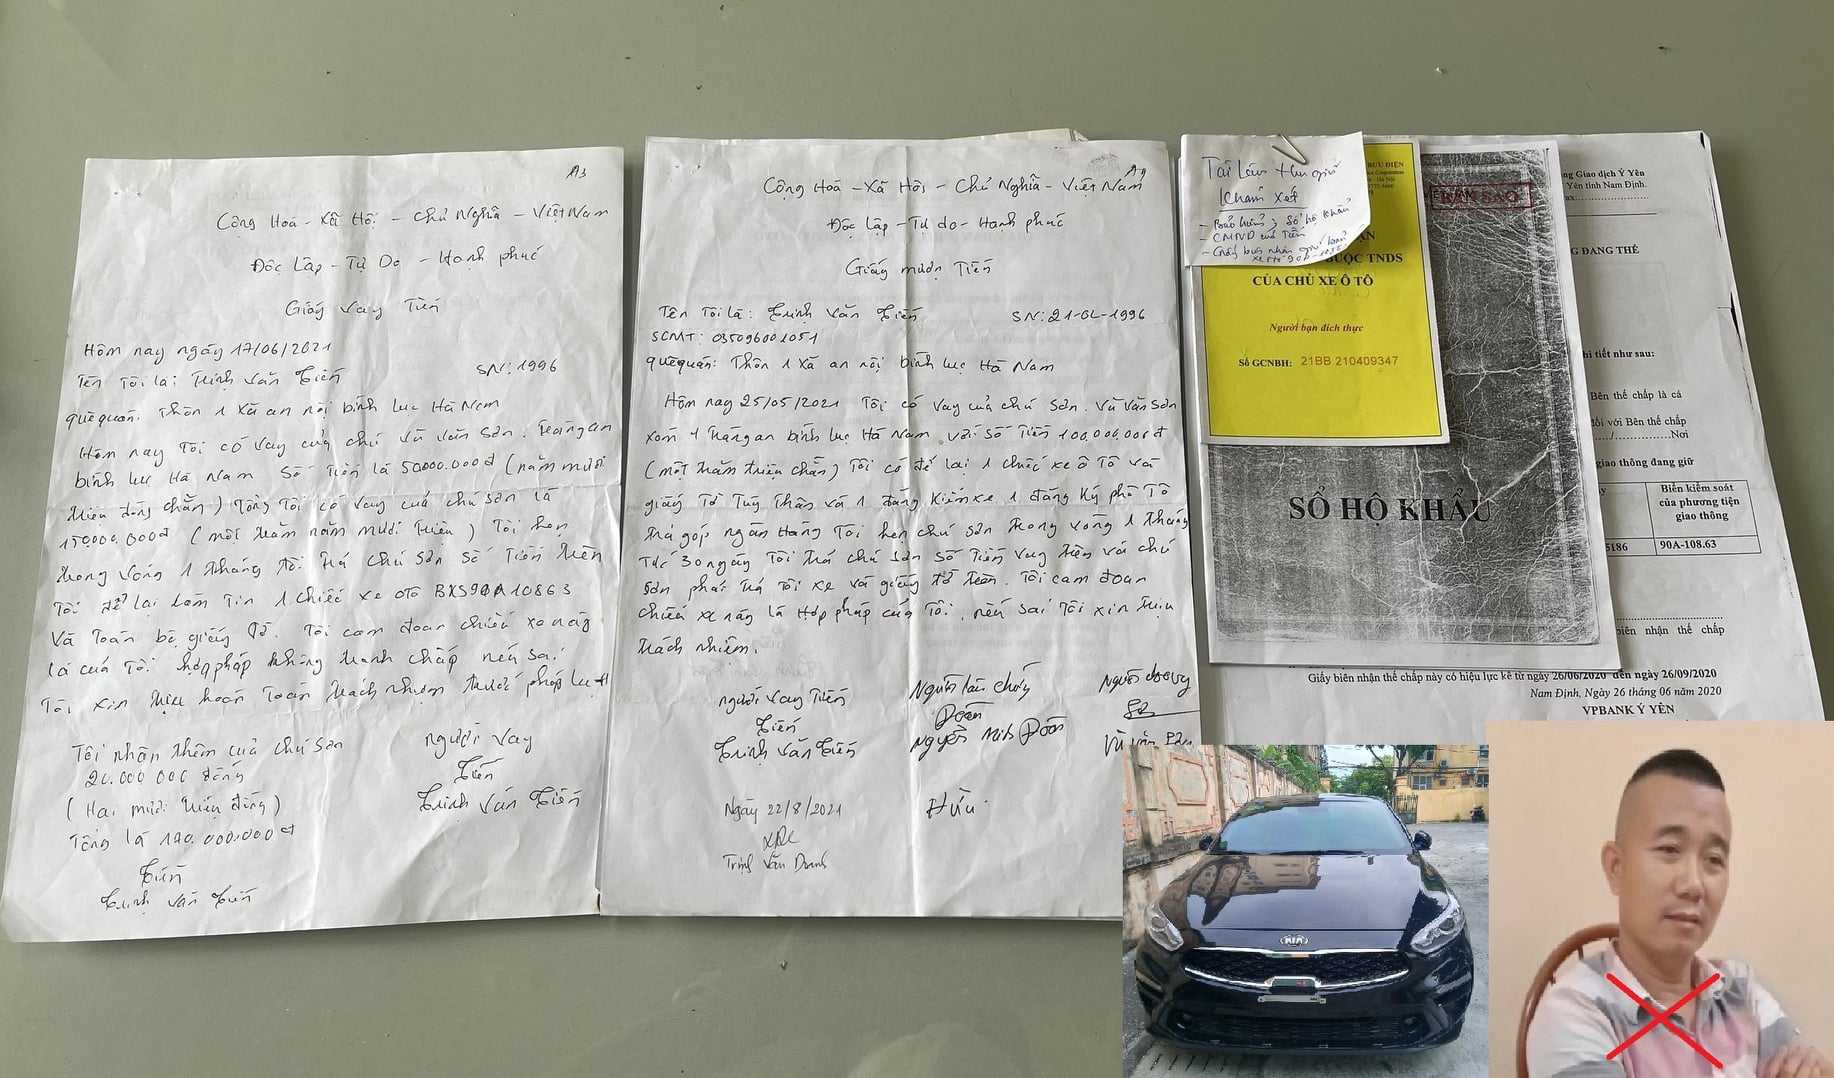 A3
Cộng Hoà - Xã Hội - Chủ Nghĩa - Việt Nam
Độc Lập - Tự Do - Hạnh phúc
Giấy Vay Tiền
Hôm nay ngày 17/06/2021
Tên Tôi là: Trịnh Văn Tiến SN: 1996
quê quán: Thôn 1 Xã an nội bình lục Hà Nam
Hôm nay Tôi có vay của chú Vũ Văn Sơn. Tràng an
bình lục Hà Nam Số Tiền là 50.000.000đ (năm mươi
triệu đồng chẵn) Tổng Tôi có vay của chú Sơn là
150.000.000đ (một trăm năm mươi triệu) Tôi hẹn
trong vòng 1 tháng tôi trả chú Sơn số tiền trên
Tôi để lại làm tin 1 chiếc xe ôtô BKS 90A 10863
Và toàn bộ giấy tờ. Tôi cam đoan chiếc xe này
là của Tôi hợp pháp không tranh chấp nếu sai
Tôi xin chịu hoàn toàn trách nhiệm trước pháp luật
Tôi nhận thêm của chú Sơn
20.000.000 đồng
(Hai mươi triệu đồng)
Tổng là 170.000.000đ
Tiến
Trịnh Văn Tiến
người vay
Tiến
Trịnh Văn Tiến
Cộng Hoà - Xã Hội - Chủ Nghĩa - Việt Nam
Độc Lập - Tự do - Hạnh phúc
Giấy mượn Tiền
Tên Tôi là: Trịnh Văn Tiến SN: 21-02-1996
SCMT: 035096001051
quê quán: Thôn 1 xã an nội bình lục Hà Nam
Hôm nay 25/05/2021 Tôi có vay của chú Sơn. Vũ Văn Sơn
xóm 1 tràng an bình lục Hà Nam với số Tiền 100.000.000đ
(một trăm triệu chẵn) Tôi có để lại 1 chiếc xe ô Tô và
giấy Tờ Tuỳ Thân và 1 đăng kiểm xe 1 đăng ký phô Tô
trả góp ngân Hàng Tôi hẹn chú Sơn trong vòng 1 tháng
Tức 30 ngày Tôi trả chú Sơn số Tiền vay trên và chú
Sơn phải trả Tôi xe và giấy tờ trên. Tôi cam đoan
chiếc xe này là Hợp pháp của Tôi, nếu sai Tôi xin chịu
trách nhiệm.
người vay Tiền
Tiến
Trịnh Văn Tiến
Người làm chứng
Đoàn
Nguyễn Minh Đoàn
Người cho vay
Ngày 22/8/2021
Trịnh Văn Doanh
Hữu
Tài Liệu thu giữ
khám xét
- Bảo hiểm; Sổ hộ khẩu
- CMND của Tiến
- Giấy biên nhận
BƯU ĐIỆN
BUỘC TNDS
CỦA CHỦ XE Ô TÔ
Người bạn đích thực
Số GCNBH: 21BB 210409347
BẢN SAO
SỔ HỘ KHẨU
Giao dịch Ý Yên
Yên tỉnh Nam Định.
G ĐANG THẾ
hi tiết như sau:
Bên thế chấp là cá
đối với Bên thế chấp
Nơi
giao thông đang giữ
Biển kiểm soát
của phương tiện
giao thông
5186 90A-108.63
biên nhận thế chấp
Giấy biên nhận thế chấp này có hiệu lực kể từ ngày 26/06/2020 đến ngày 26/09/2020
Nam Định, Ngày 26 tháng 06 năm 2020
VPBANK Ý YÊN
KIA